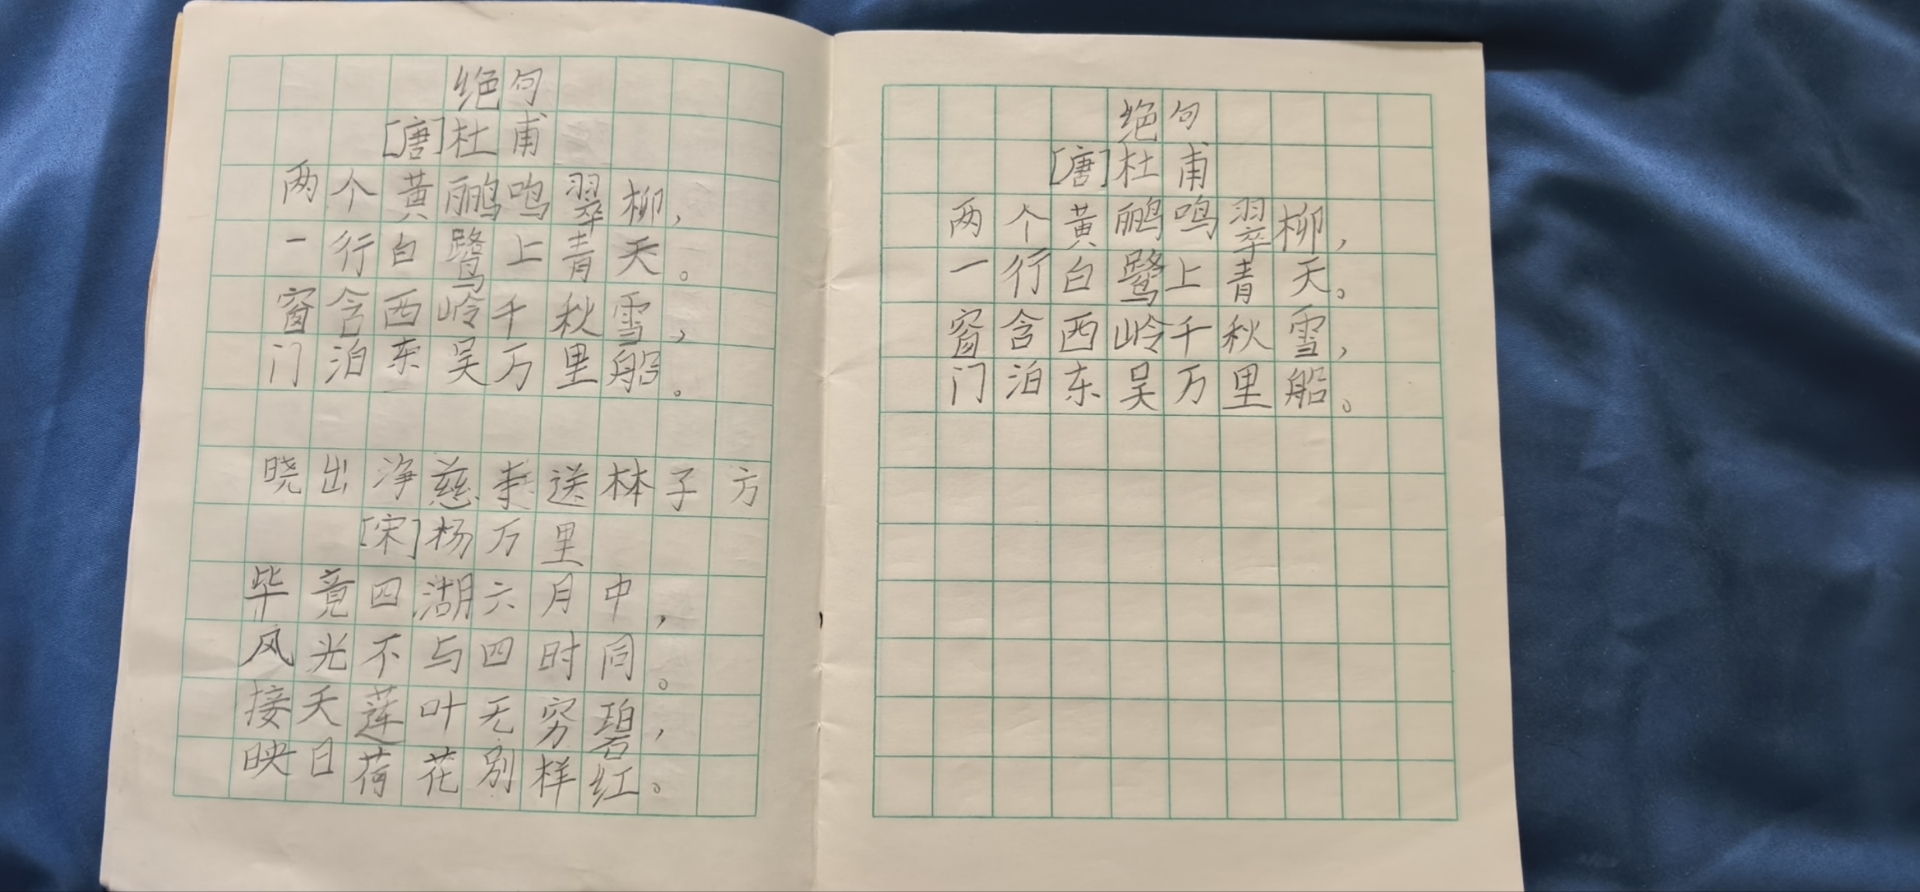 绝句
[唐]杜甫
两个黄鹂鸣翠柳，
一行白鹭上青天。
窗含西岭千秋雪，
门泊东吴万里船。
晓出净慈寺送林子方
[宋]杨万里
毕竟四湖六月中，
风光不与四时同。
接天莲叶无穷碧，
映日荷花别样红。
绝句
[唐]杜甫
两个黄鹂鸣翠柳，
一行白鹭上青天。
窗含西岭千秋雪，
门泊东吴万里船。